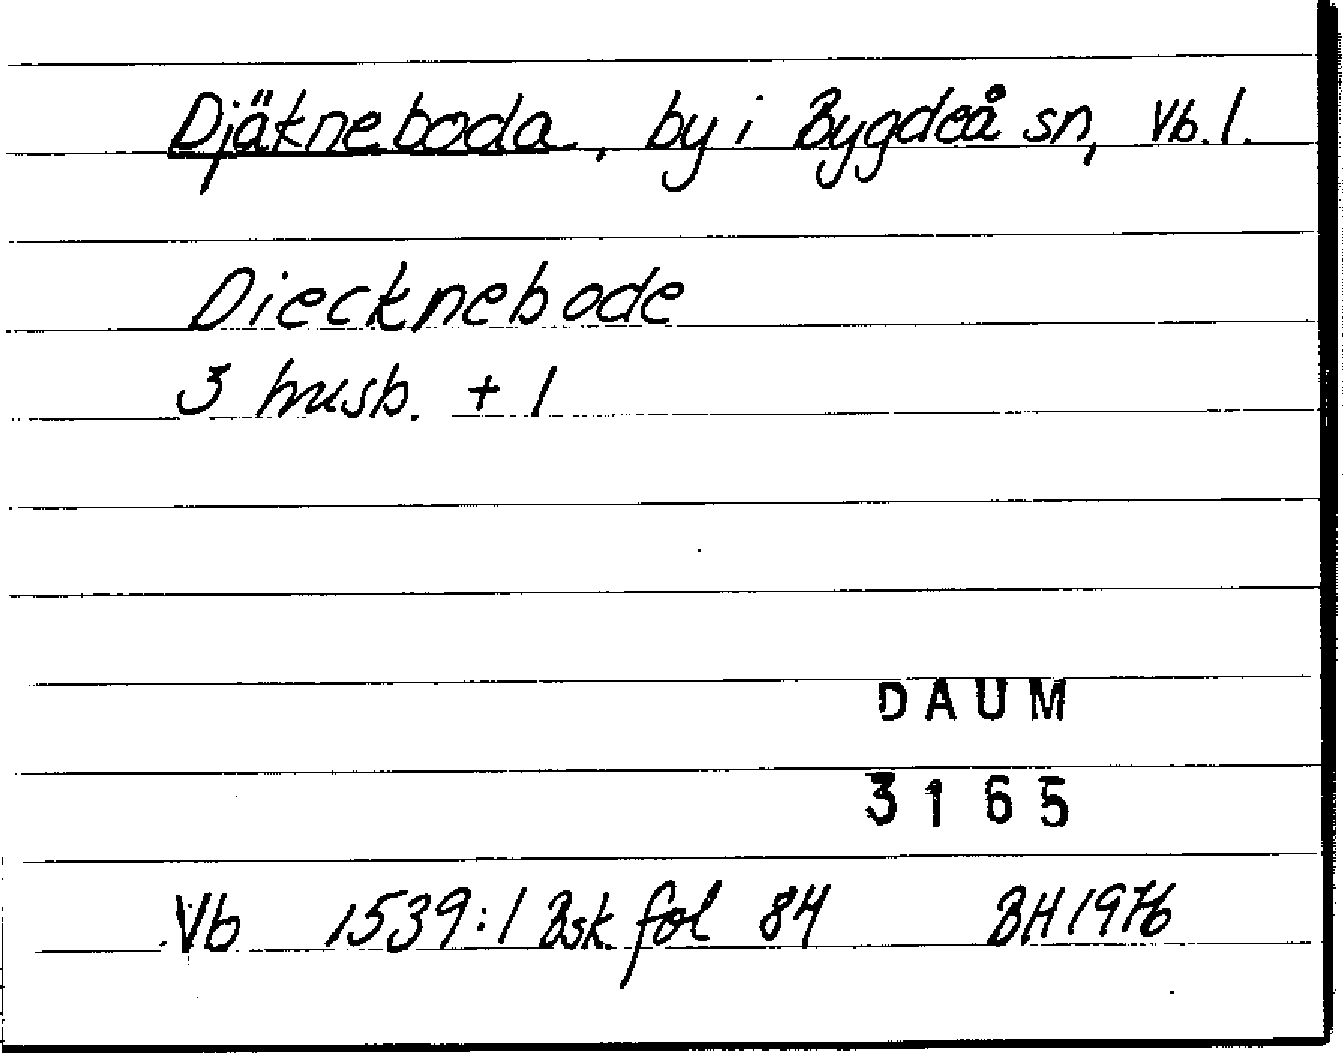 Djäkneboda, by i Bygdeå sn, Vb. l.
Diecknebode
3 husb. + 1
DAUM
3165
Vb 1539:1 Bsk fol 84 BH 1976